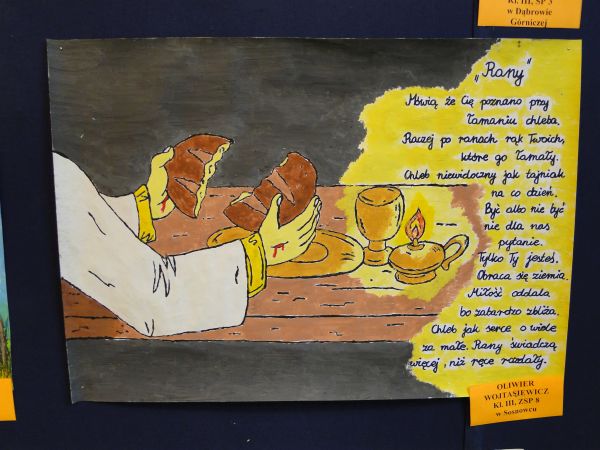 Kl. III, SP 3
w Dąbrowie
Górniczej
„Rany"
Mówią, że Cię poznano przy
łamaniu chleba.
Raczej po ranach rąk Twoich,
które go łamały.
Chleb niewidoczny jak tajniak
na co dzień.
Być albo nie być
nie dla nas
pytanie.
Tylko Ty jesteś.
Obraca się ziemia.
Miłość oddala
bo zabardzo zbliża.
Chleb jak serce o wiele
za małe. Rany świadczą
więcej, niż ręce rozdały.
OLIWIER
WOJTASIEWICZ
Kl. III, ZSP 8
w Sosnowcu